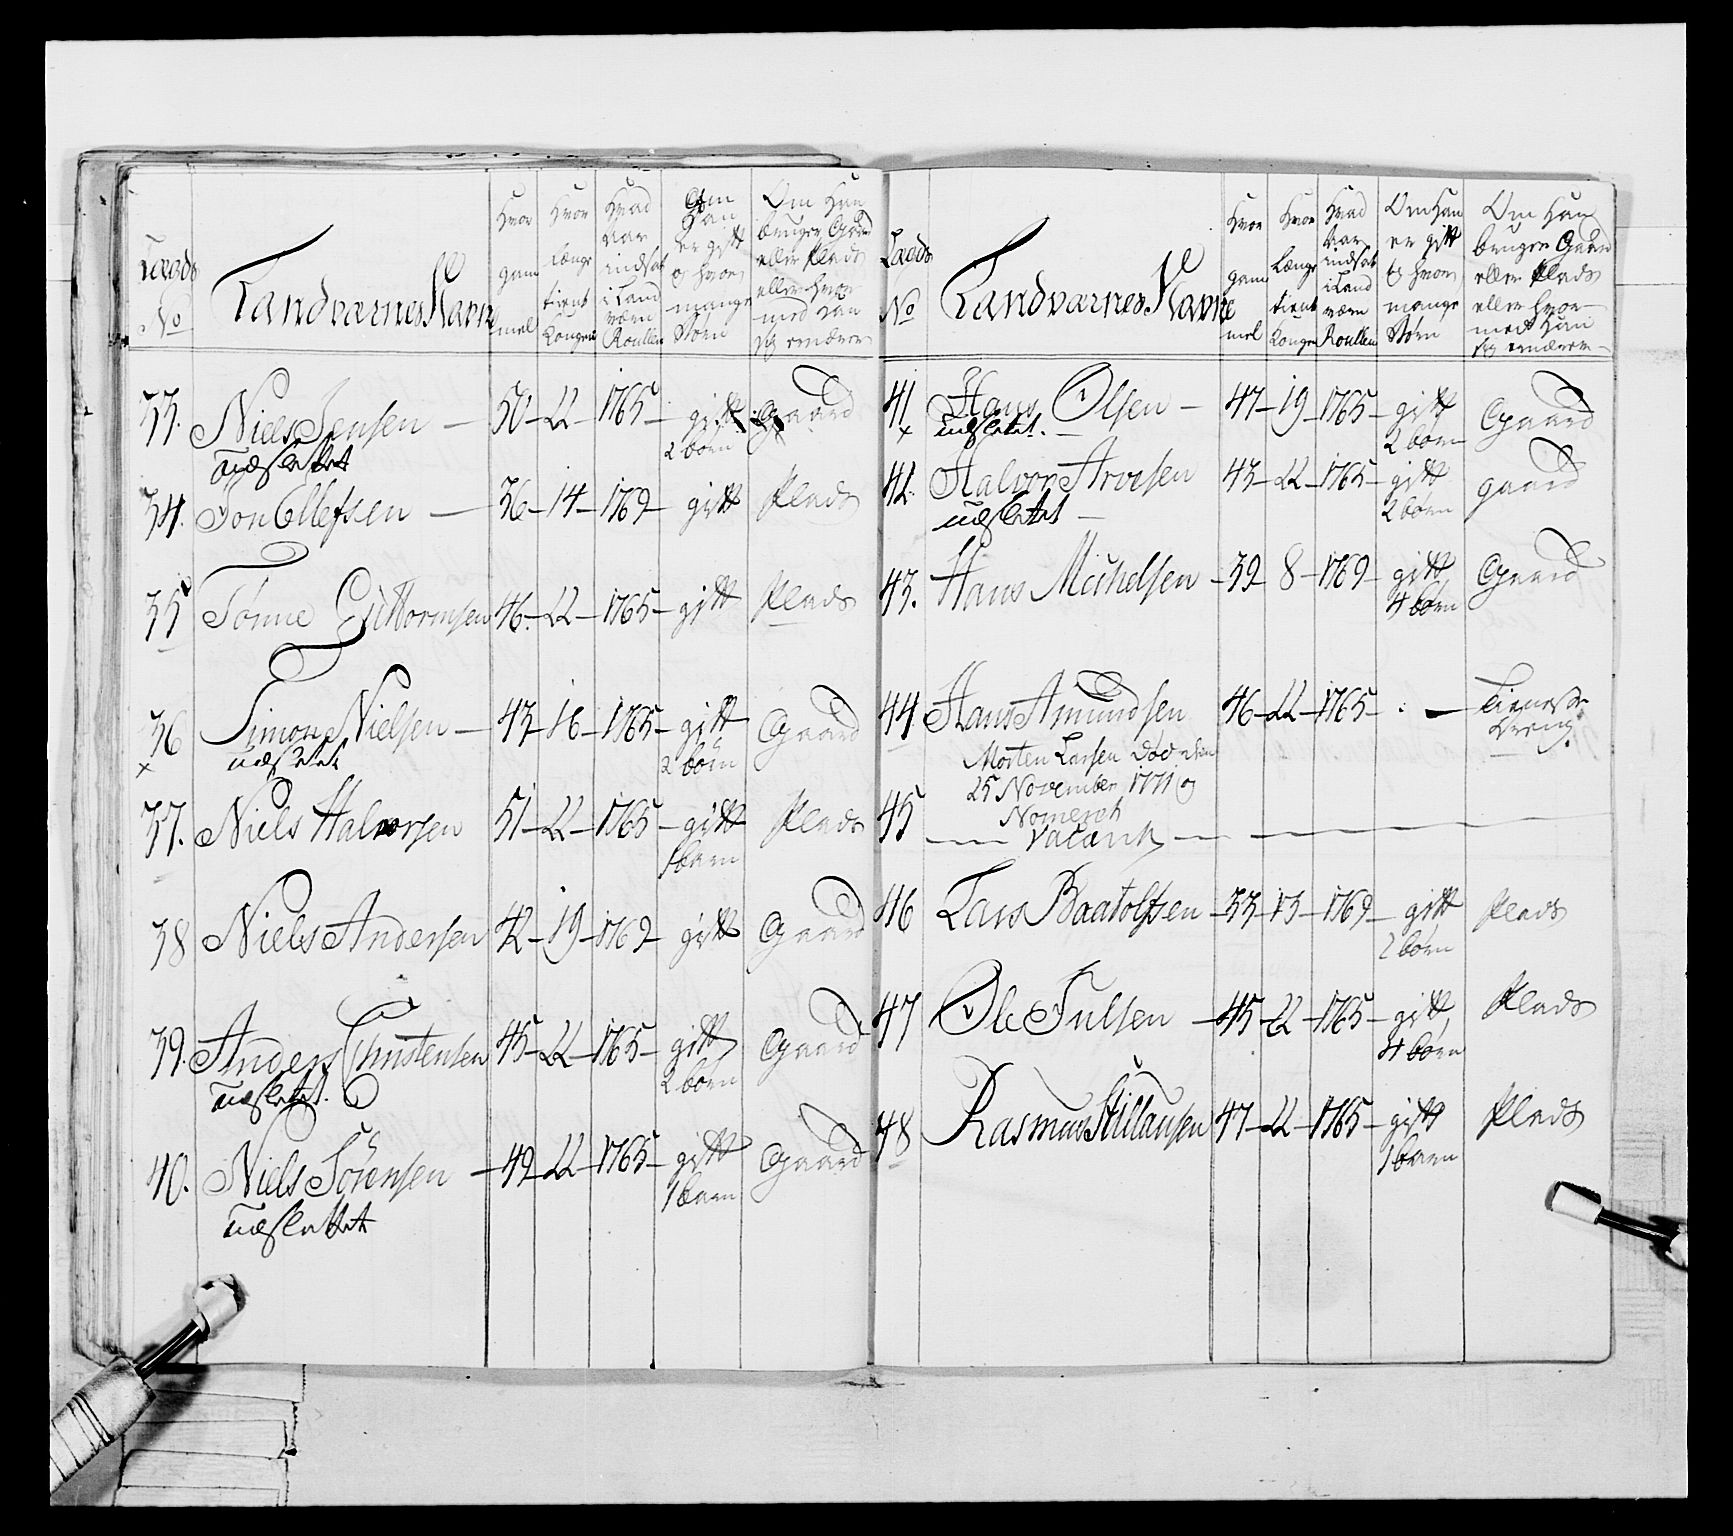 Laeds No | Landværnes Navn | Hvor gammel | Hvor længe tient Kongen | Hvad Aar indsat i Land værn Roullen | Om Han er gift og hvor mange Børn | Om Han bruger Gaard eller Plads eller Hvor med Han sig ernærer
33. Niels Jensen — 50 — 22 — 1765 — gift 2 børn Gaard
udslettet
34. Jon Ellefsen — 36 — 14 — 1769 — gift Plads
35 Tønne Guttormsen 46 — 22 — 1765 — gift Plads
36 Simon Nielsen — 43 — 16 — 1765 — gift 2 børn Gaard
x udslettet
37. Niels Halvorsen 51 — 22 — 1765 — gift 1 barn Plads
38 Niels Andersen 42 — 19 — 1769 — gift Gaard
39. Anders Christensen 45 — 22 — 1765 — gift 2 børn Gaard
udslettet.
40. Niels Sörensen — 49 — 22 — 1765 — gift 1 barn Gaard
udslettet
Laeds No | Landværnes Navne | Hvor gammel | Hvor Længe tient Konge | Hvad Aar indsat i Land værn Roullen | Om Han er gift og hvor mange Børn | Om Han bruger Gaard eller Plads eller hvor med Han sig ernærer
41 Hans Olsen — 47 — 19 — 1765 — gift 2 børn Gaard
x udslettet. —
42. Halvor Arvesen 43 — 22 — 1765 — gift 2 børn gaard
udslettet —
43. Hans Michelsen — 39 — 8 — 1769 — gift 4 børn Gaard
44 Hans Amundsen 46 — 22 — 1765 — . — Tieneste Dreng.
Morten Larsen Död den
25 November 1771 og
45 Nomeret
Vacant
46 Lars Baatolfsen — 33 — 13 — 1769 — gift 2 børn Plads
47 Ole Julsen — 45 — 22 — 1765 — gift 4 børn Plads
48 Rasmus Stillausen 47 — 22 — 1765 — gift 1 barn Plads